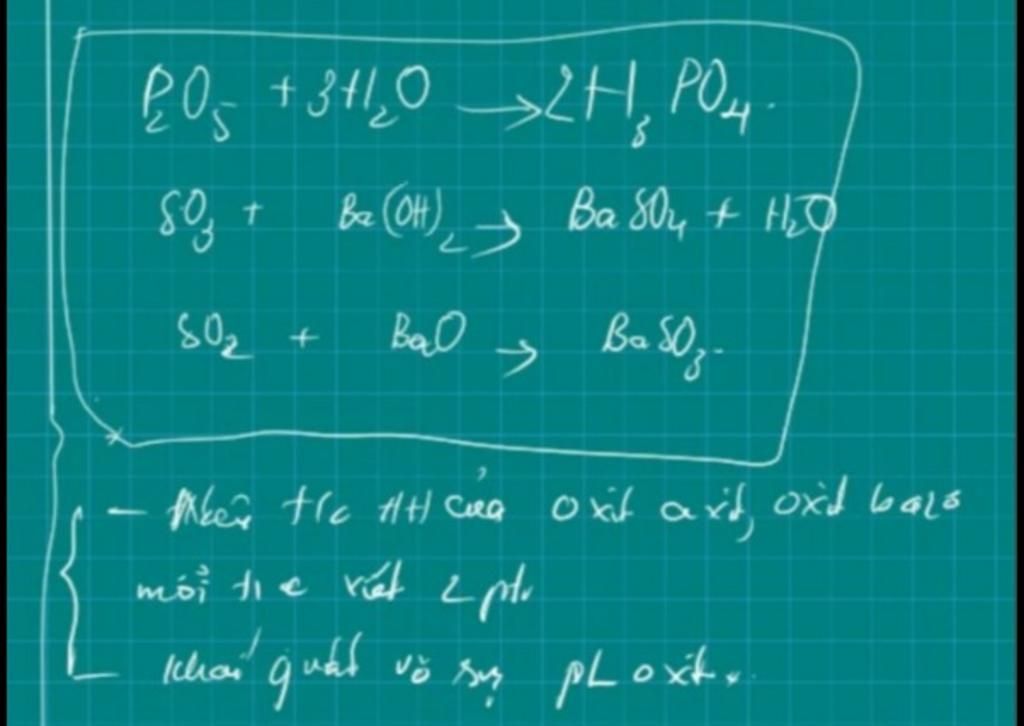 P₂O₅ + 3H₂O → 2H₃PO₄.
SO₃ + Ba(OH)₂ → BaSO₄ + H₂O
SO₂ + BaO → BaSO₃.
- Nêu t/c HH của oxit axit, oxit bazơ
mỗi t/c viết 2 ptr
- Khái quát về sự pL oxit.